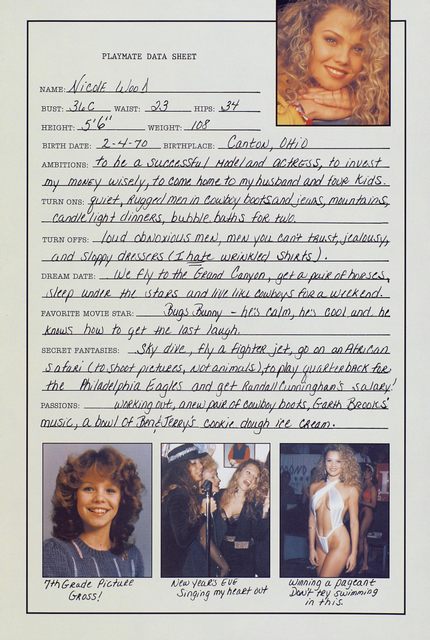 PLAYMATE DATA SHEET
NAME: Nicole Wood
BUST: 36C WAIST: 23 HIPS: 34
HEIGHT: 5'6" WEIGHT: 108
BIRTH DATE: 2-4-70 BIRTHPLACE: Canton, Ohio
AMBITIONS: to be a successful model and actress, to invest
my money wisely, to come home to my husband and four kids.
TURN ONS: quiet, rugged men in cowboy boots and jeans, mountains,
candlelight dinners, bubble baths for two.
TURN OFFS: loud obnoxious men, men you can't trust, jealousy,
and sloppy dressers (I hate wrinkled shirts).
DREAM DATE: We fly to the Grand Canyon, get a pair of horses,
sleep under the stars and live like cowboys for a weekend.
FAVORITE MOVIE STAR: Bugs Bunny - he's calm, he's cool and he
knows how to get the last laugh.
SECRET FANTASIES: Sky dive, fly a fighter jet, go on an African
safari (to shoot pictures, not animals), to play quarterback for
the Philadelphia Eagles and get Randall Cunningham's salary!
PASSIONS: working out, a new pair of cowboy boots, Garth Brooks'
music, a bowl of Ben & Jerry's cookie dough ice cream.
7th Grade Picture
GROSS!
New Years Eve
Singing my heart out
Winning a pageant
Don't try swimming
in this.